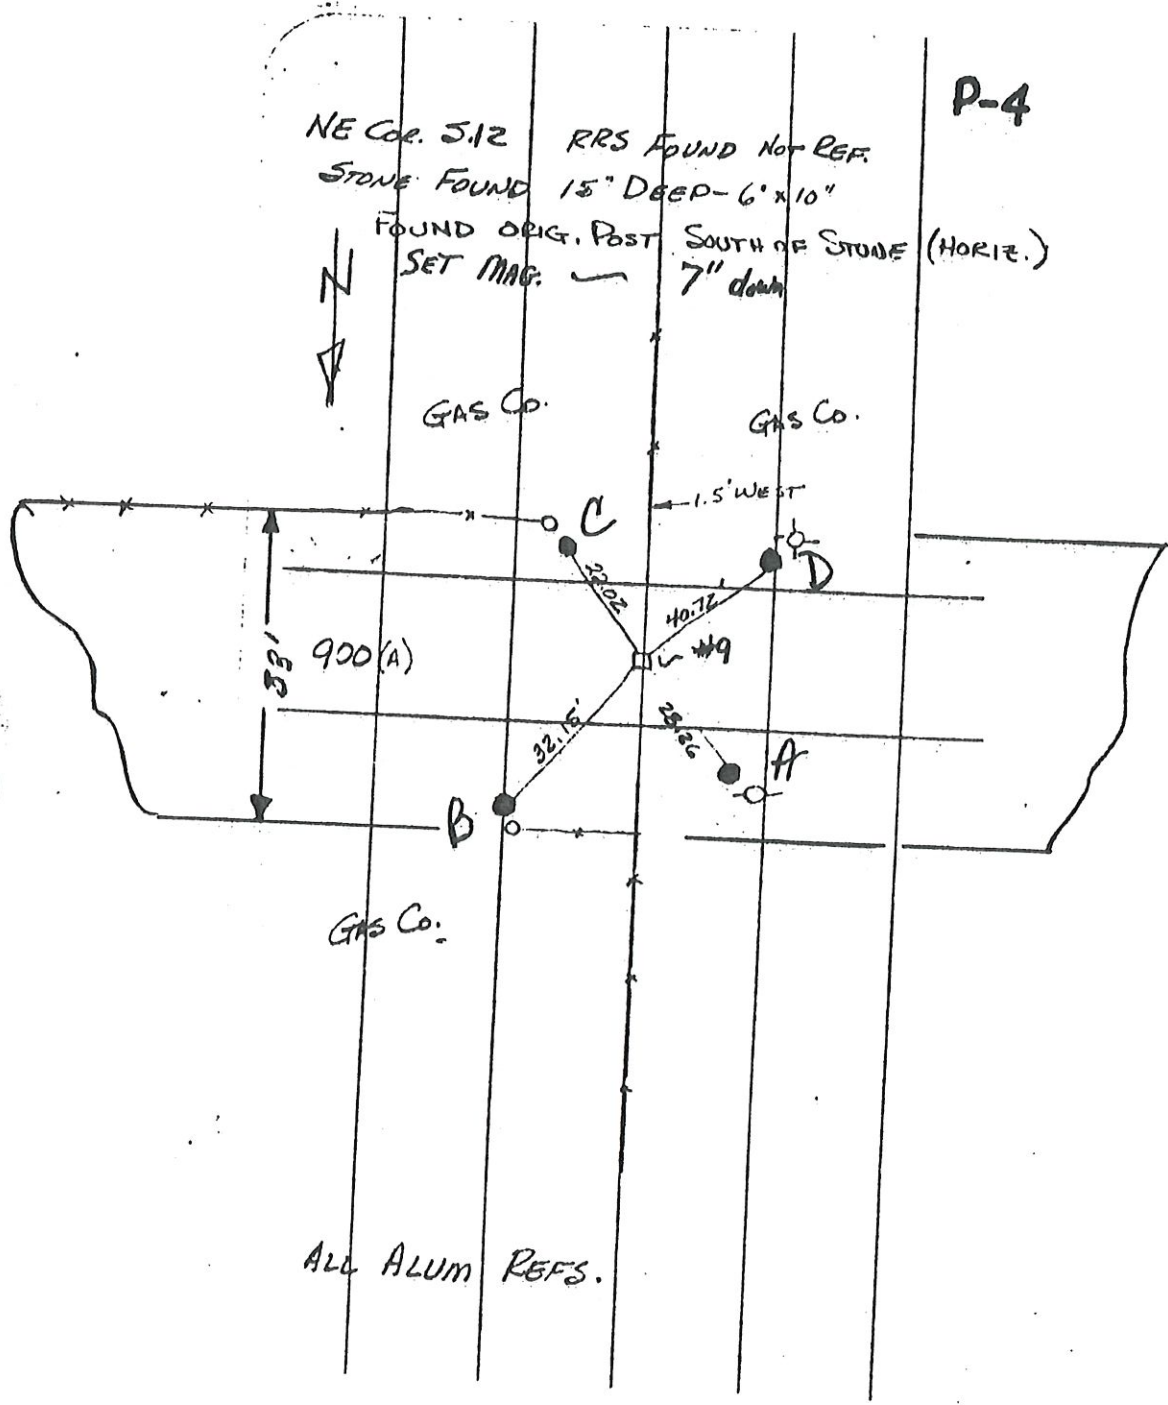 P-4
NE COR. S.12 RRS FOUND NOT REF.
STONE FOUND 15" DEEP - 6" x 10"
FOUND ORIG. POST SOUTH OF STONE (HORIZ.)
SET MAG. 7" down
N
GAS CO.
GAS CO.
1.5' WEST
C
D
22.02
40.72'
#9
33'
900 (A)
32.15'
28.26
A
B
GAS CO.
ALL ALUM REFS.